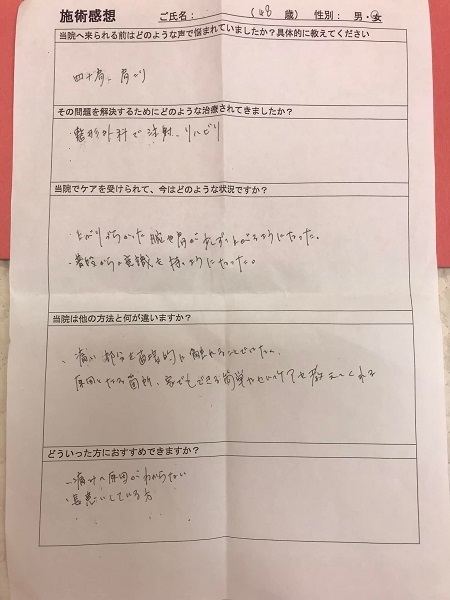 施術感想 ご氏名: (48 歳) 性別: 男・女
当院へ来られる前はどのような声で悩まれていましたか?具体的に教えてください
四十肩、肩こり
その問題を解決するためにどのような治療されてきましたか?
・整形外科で注射、リハビリ
当院でケアを受けられて、今はどのような状況ですか?
・上がりづらかった腕や肩が少しずつ上がるようになった。
・普段からの意識を持つようになった。
当院は他の方法と何が違いますか?
・痛い部分を直接的に触れることでない。
原因となる箇所、家でもできる簡単なセルフケアを教えてくれる
どういった方におすすめできますか?
・痛みの原因がわからない
・長患いしている方